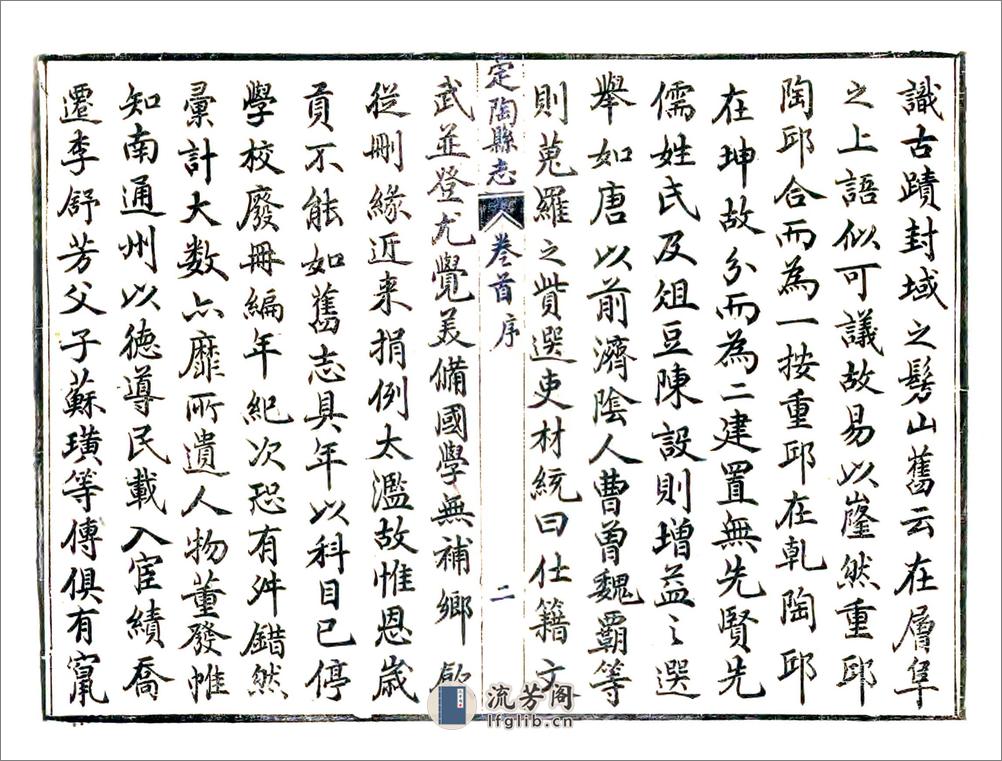 識古蹟封域之髣山舊云在層阜
之上語似可議故易以巃然重邱
陶邱合而為一按重邱在乹陶邱
在坤故分而為二建置無先賢先
儒姓氏及俎豆陳設則增益之選
舉如唐以前濟陰人曹曾魏覇等
則蒐羅之貲選吏材統曰仕籍文
定陶縣志 卷首序 二
武並登尤覺美備國學無補鄉飲
從刪緣近来捐例太濫故惟恩歲
貢不能如舊志具年以科目已停
學校廢冊編年紀次恐有舛錯然
彙計大数亦靡所遺人物董發帷
知南通州以德導民載入宦績喬
遷李舒芳父子蘇璜等傳俱有竄
流芳阁
lfglib.cn